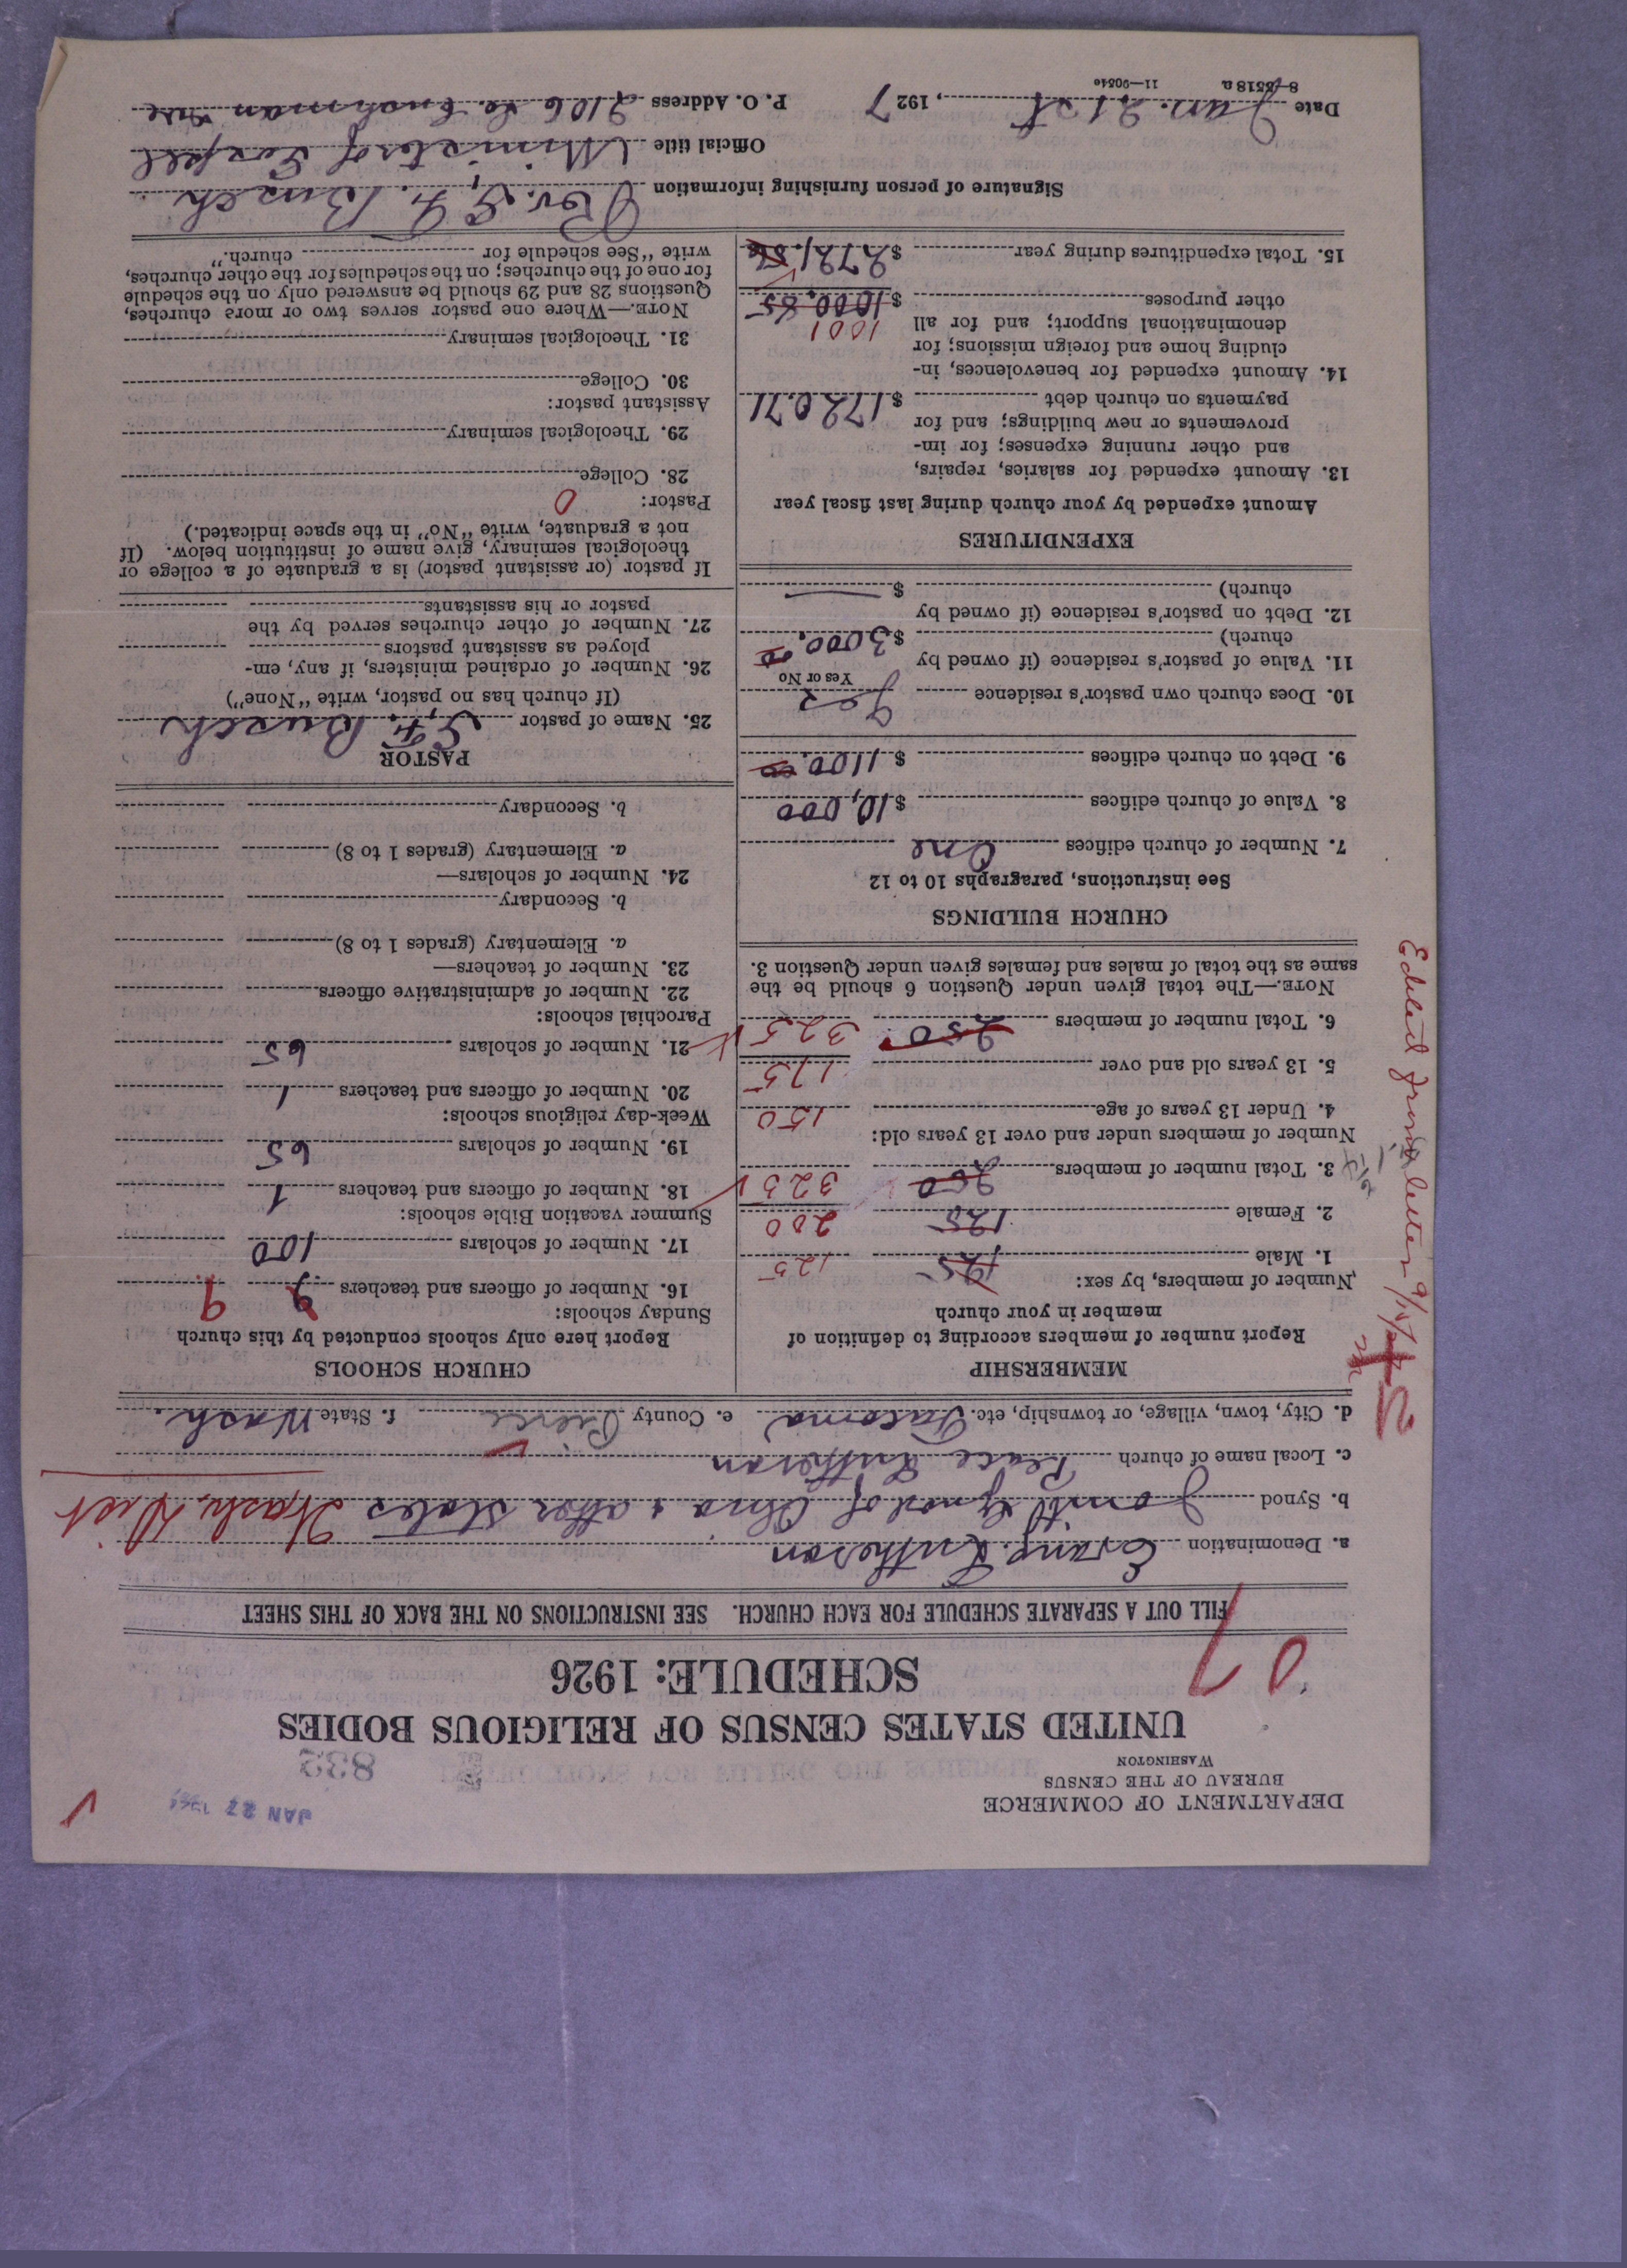 DEPARTMENT OF COMMERCE
BUREAU OF THE CENSUS
WASHINGTON
JAN 27
833
UNITED STATES CENSUS OF RELIGIOUS BODIES
SCHEDULE: 1926
07
FILL OUT A SEPARATE SCHEDULE FOR EACH CHURCH. SEE INSTRUCTIONS ON THE BACK OF THIS SHEET
a. Denomination Evang. Lutheran
b. Synod Joint Synod of Ohio & other States Wash. Dist
c. Local name of church Peace Lutheran
d. City, town, village, or township, etc. Tacoma e. County Pierce f. State Wash.
MEMBERSHIP
Report number of members according to definition of
member in your church
Number of members, by sex:
1. Male 125 125
2. Female 125 200
3. Total number of members 250 325
Number of members under and over 13 years old:
4. Under 13 years of age 150
5. 13 years old and over 175
6. Total number of members 250 325
NOTE.—The total given under Question 6 should be the
same as the total of males and females given under Question 3.
CHURCH BUILDINGS
See instructions, paragraphs 10 to 12
7. Number of church edifices One
8. Value of church edifices $10,000
9. Debt on church edifices $1100.00
10. Does church own pastor's residence Yes
Yes or No
11. Value of pastor's residence (if owned by
church) $3000.00
12. Debt on pastor's residence (if owned by
church) $ —
EXPENDITURES
Amount expended by your church during last fiscal year
13. Amount expended for salaries, repairs,
and other running expenses; for im-
provements or new buildings; and for
payments on church debt $1720.71
14. Amount expended for benevolences, in-
cluding home and foreign missions; for
denominational support; and for all
1001
other purposes $1000.85
15. Total expenditures during year $2721.56
CHURCH SCHOOLS
Report here only schools conducted by this church
Sunday schools:
16. Number of officers and teachers 9 9
17. Number of scholars 100
Summer vacation Bible schools:
18. Number of officers and teachers 1
19. Number of scholars 65
Week-day religious schools:
20. Number of officers and teachers 1
21. Number of scholars 65
Parochial schools:
22. Number of administrative officers
23. Number of teachers—
a. Elementary (grades 1 to 8)
b. Secondary
24. Number of scholars—
a. Elementary (grades 1 to 8)
b. Secondary
PASTOR
25. Name of pastor G. F. Busch
(If church has no pastor, write "None")
26. Number of ordained ministers, if any, em-
ployed as assistant pastors
27. Number of other churches served by the
pastor or his assistants
If pastor (or assistant pastor) is a graduate of a college or
theological seminary, give name of institution below. (If
not a graduate, write "No" in the space indicated.)
Pastor: 0
28. College
29. Theological seminary
Assistant pastor:
30. College
31. Theological seminary
NOTE.—Where one pastor serves two or more churches,
Questions 28 and 29 should be answered only on the schedule
for one of the churches; on the schedules for the other churches,
write "See schedule for church."
Signature of person furnishing information Rev. G. F. Busch
Official title Minister of Gospel
Date Jan. 21st, 1927 P. O. Address 2106 So Cushman Ave
8-5518a 11—9054e
Edited from letter